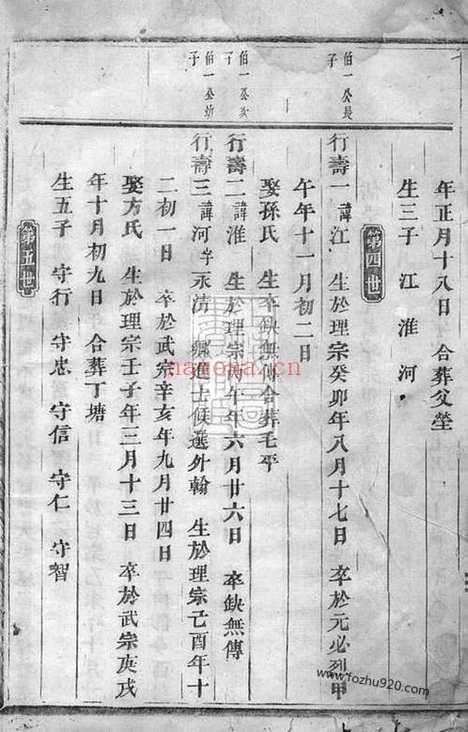 年正月十八日 合葬父塋
生三子 江 淮 河
第四世
伯一公長子
行壽一 諱江 生於理宗癸卯年八月十七日 卒於元必烈甲
午年十一月初二日
娶孫氏 生卒缺無傳合葬毛平
伯一公次子
行壽二 諱淮 生於理宗丙午年六月廿六日 卒缺無傳
伯一公幼子
行壽三 諱河字永清 鄉進士候選外翰 生於理宗己酉年十
二初一日 卒於武宗辛亥年九月廿四日
娶方氏 生於理宗壬子年三月十三日 卒於武宗庚戌
年十月初九日 合葬丁塘
生五子 守行 守忠 守信 守仁 守智
第五世
nayona.cn
www.fozhu920.com